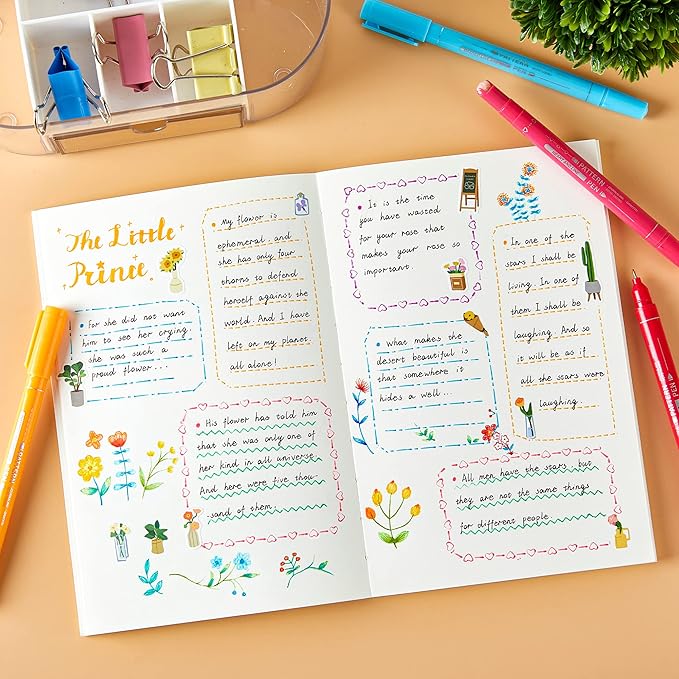 The Little
Prince
My flower is
ephemeral. and
she has only four
thorns to defend
herself against the
world. And I have
left on my planet.
all alone!
For she did not want
him to see her crying.
she was such a
proud flower...
His flower has told him
that she was only one of
her kind in all universe
And here were five thou-
sand of them.
It is the time
you have wasted
for your rose that
makes your rose so
important.
what makes the
desert beautiful is
that somewhere it
hides a well...
In one of the
stars I shall be
living. In one of
them I shall be
laughing. And so
it will be as if
all the stars were
laughing.
All men have the stars. but
they are not the same things
for different people.
PATTERN
PEN
PATTERN